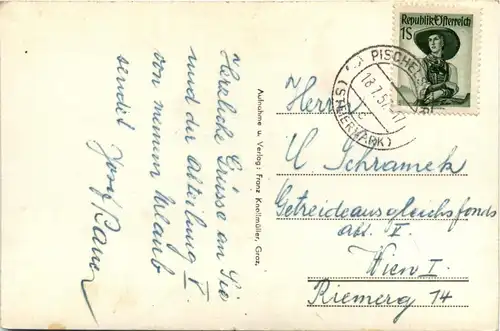 Herzliche Grüsse an Sie
und der Abteilung V.
von meinem Urlaub
sendet
Josef Bauer
Aufnahme u. Verlag: Franz Knollmüller, Graz.
Republik Österreich
1S
PISCHELS
18.7.5
(STEIERMARK)
Herrn
U Schramek
Getreideausgleichsfonds
Abt. V.
Wien I.
Riemerg 14